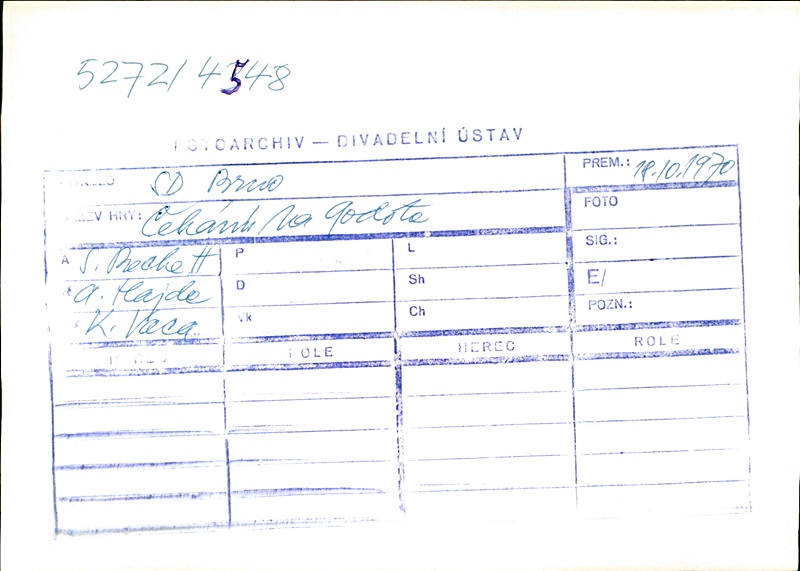 5272/4548
FOTOARCHIV — DIVADELNÍ ÚSTAV
SD Brno
PREM.: 18.10.1970
NÁZEV HRY: Čekání na Godota
FOTO
A S. Beckett P L SIG.:
R A. Hajda D Sh E/
K. Vaca Vk Ch POZN.:
HEREC ROLE HEREC ROLE